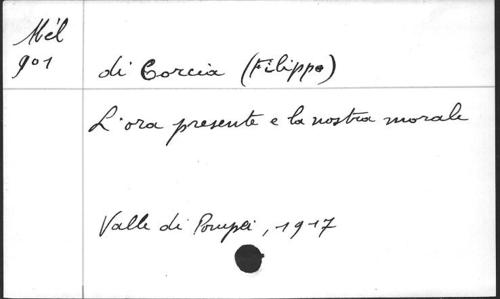 Mél
901
di Corcia (Filippo)
L'ora presente e la nostra morale
Valle di Pompei, 1917